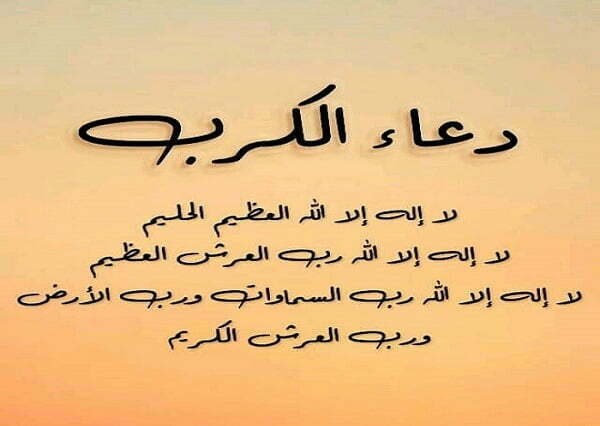 دعاء الكرب
لا إله إلا الله العظيم الحليم
لا إله إلا الله رب العرش العظيم
لا إله إلا الله رب السماوات ورب الأرض
ورب العرش الكريم